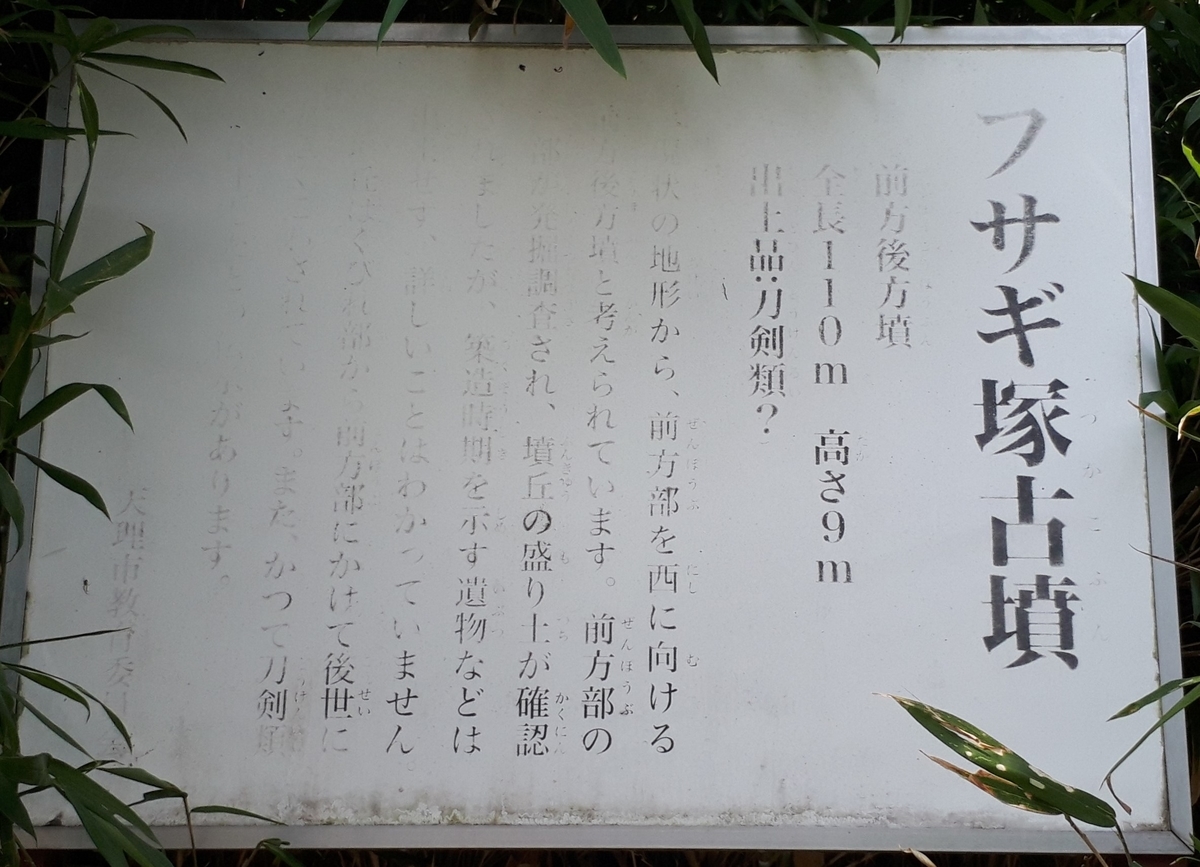 フサギ塚古墳
前方後方墳
全長110m 高さ9m
出土品:刀剣類?
状の地形から、前方部を西に向ける
後方墳と考えられています。前方部の
部が発掘調査され、墳丘の盛り土が確認
ましたが、築造時期を示す遺物などは
せず、詳しいことはわかっていません
はくびれ部から前方部にかけて後世に
されています。また、かつて刀剣類
があります。
天理市教育委